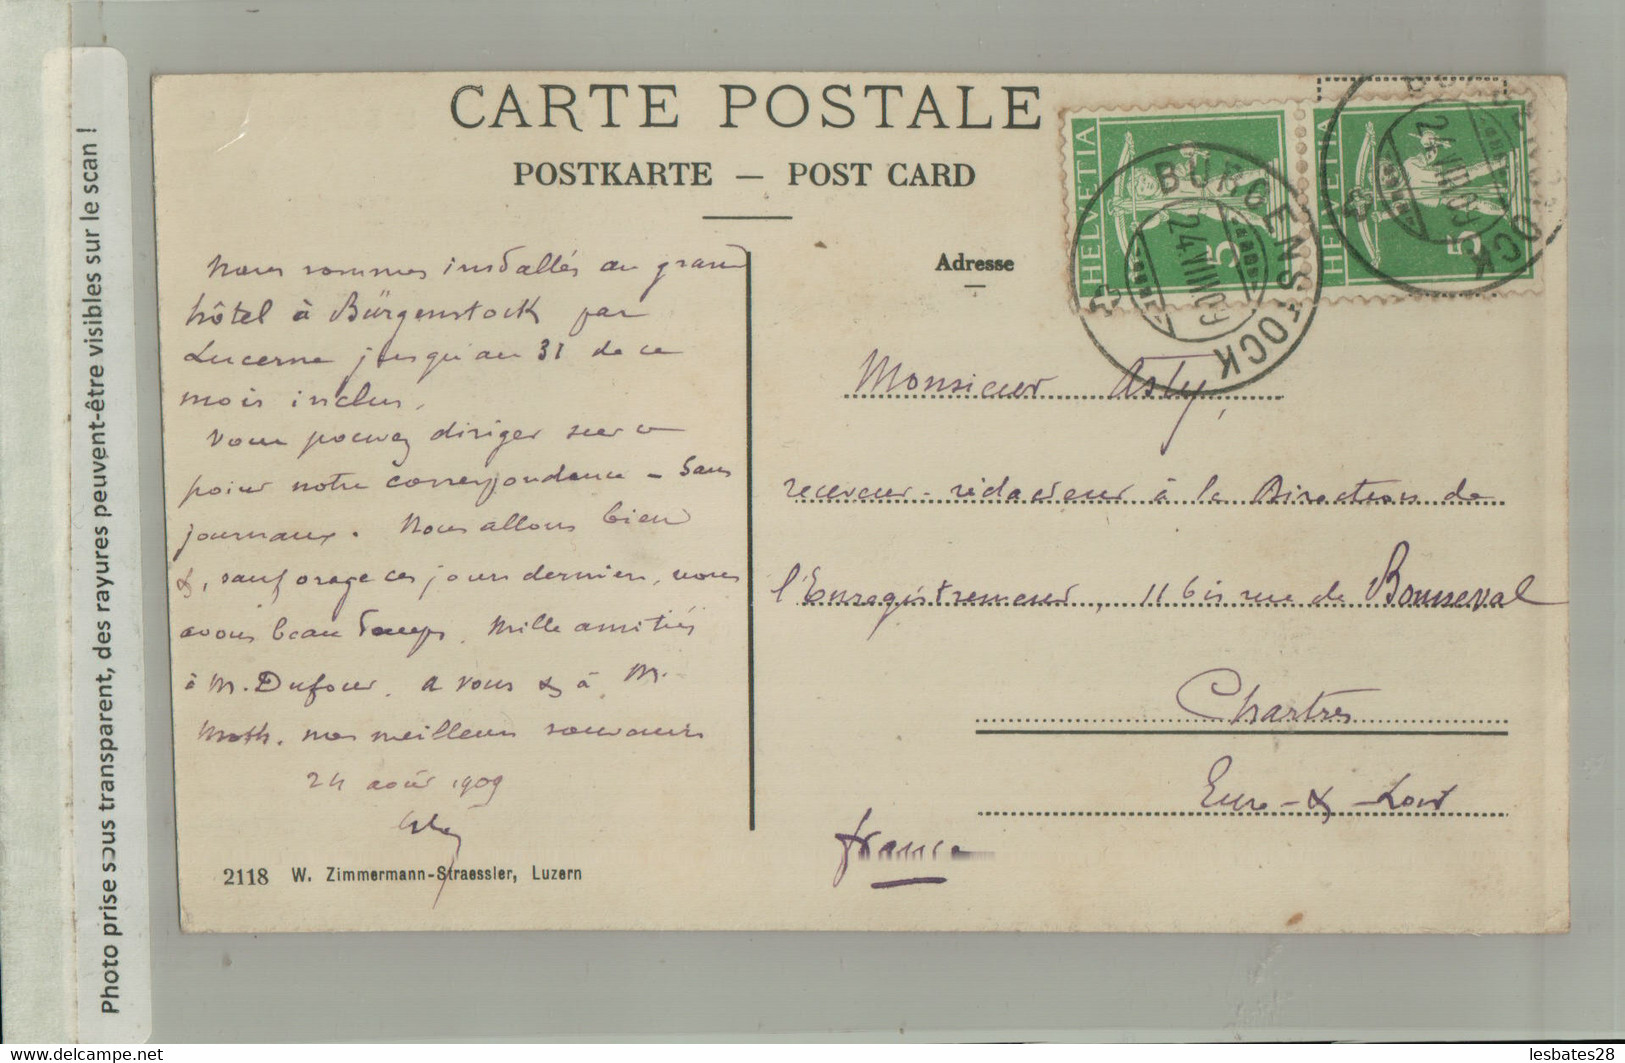 Photo prise sous transparent, des rayures peuvent-être visibles sur le scan !
CARTE POSTALE
POSTKARTE — POST CARD
HELVETIA 5
HELVETIA 5
BÜRGENSTOCK
24.VIII.09
BÜRGENSTOCK
24.VIII.09
Nous sommes installés au grand
hôtel à Bürgenstock par
Lucerne jusqu'au 31 de ce
mois inclus.
Vous pouvez diriger sur ce
point notre correspondance - sans
journaux. Nous allons bien
&, sauf orage ces jours derniers, nous
avons beau temps. Mille amitiés
à M. Dufour. A vous & à M.
mes meilleurs souvenirs
24 août 1909
2118 W. Zimmermann-Straessler, Luzern
Adresse
Monsieur Asty,
receveur-rédacteur à la Direction de
l'Enregistrement, 11 bis rue de Bonneval
Chartres
Eure-&-Loir
France
lesbates28